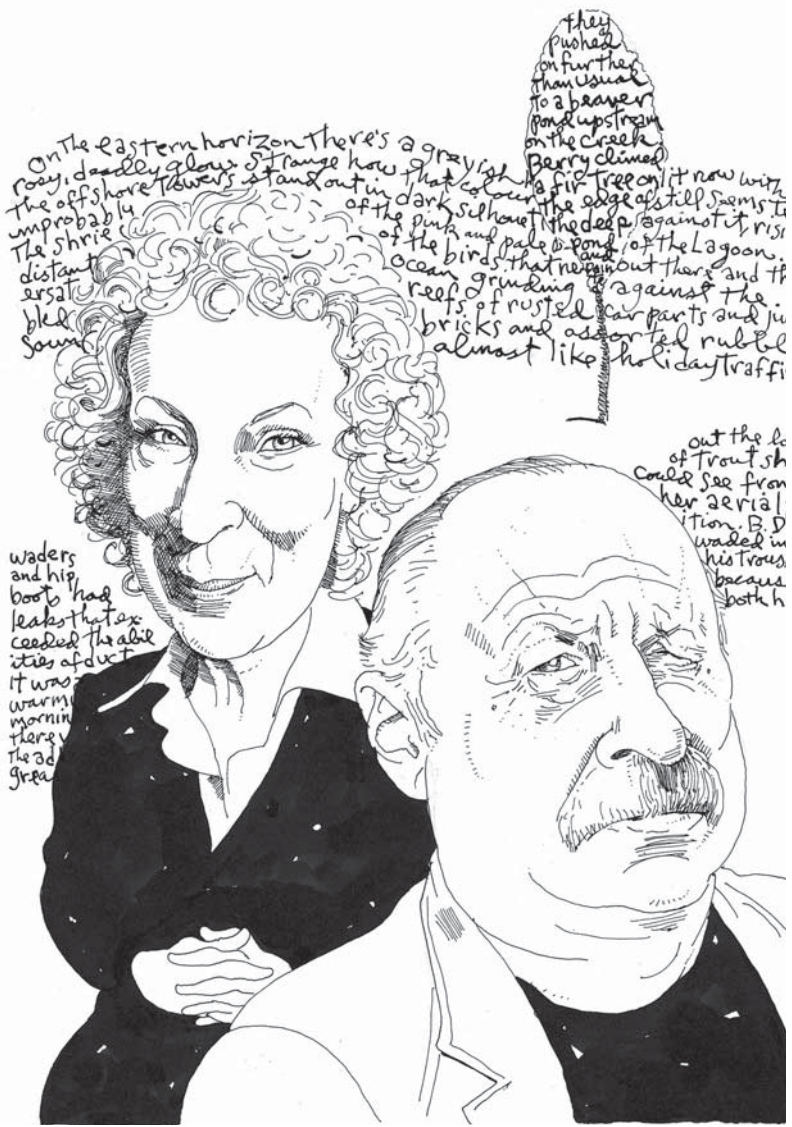 they
pushed
on further
than usual
to a beaver
pond upstream
on the creek
Berry climed
a fir tree on
the edge of
the deep
pond
and
On the eastern horizon there's a greyish
rosy, deadly glow. Strange how that colour it now with
the offshore towers stand out in dark silhouet still seems te
improbably of the pink and pale against it, risi
The shrie of the birds that ne of the Lagoon.
distant ocean grinding out there and th
ersat reefs of rusted against the
bled bricks and assorted car parts and ju
Soun almost like holiday traffi
rubbl
out the
of trout sh
Could see from
her aerial
ition. B.D
waded in
his trous
becaus
both h
waders
and hip
boots had
leaks that ex
ceeded the abil
ities of duct
It was
warm
mornin
there
The ad
grea